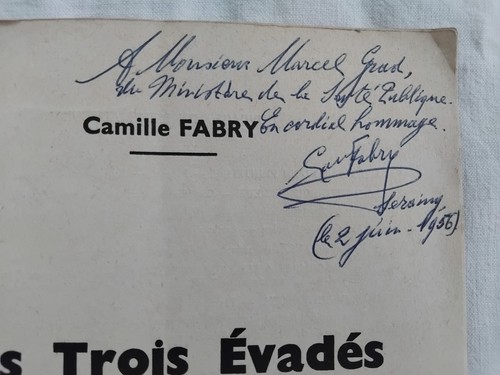 A Monsieur Marcel Grad,
du Ministère de la Santé Publique.
En cordial hommage.
Camille FABRY
Fabry
Seraing
(le 2 juin 1956)
s Trois Évadés